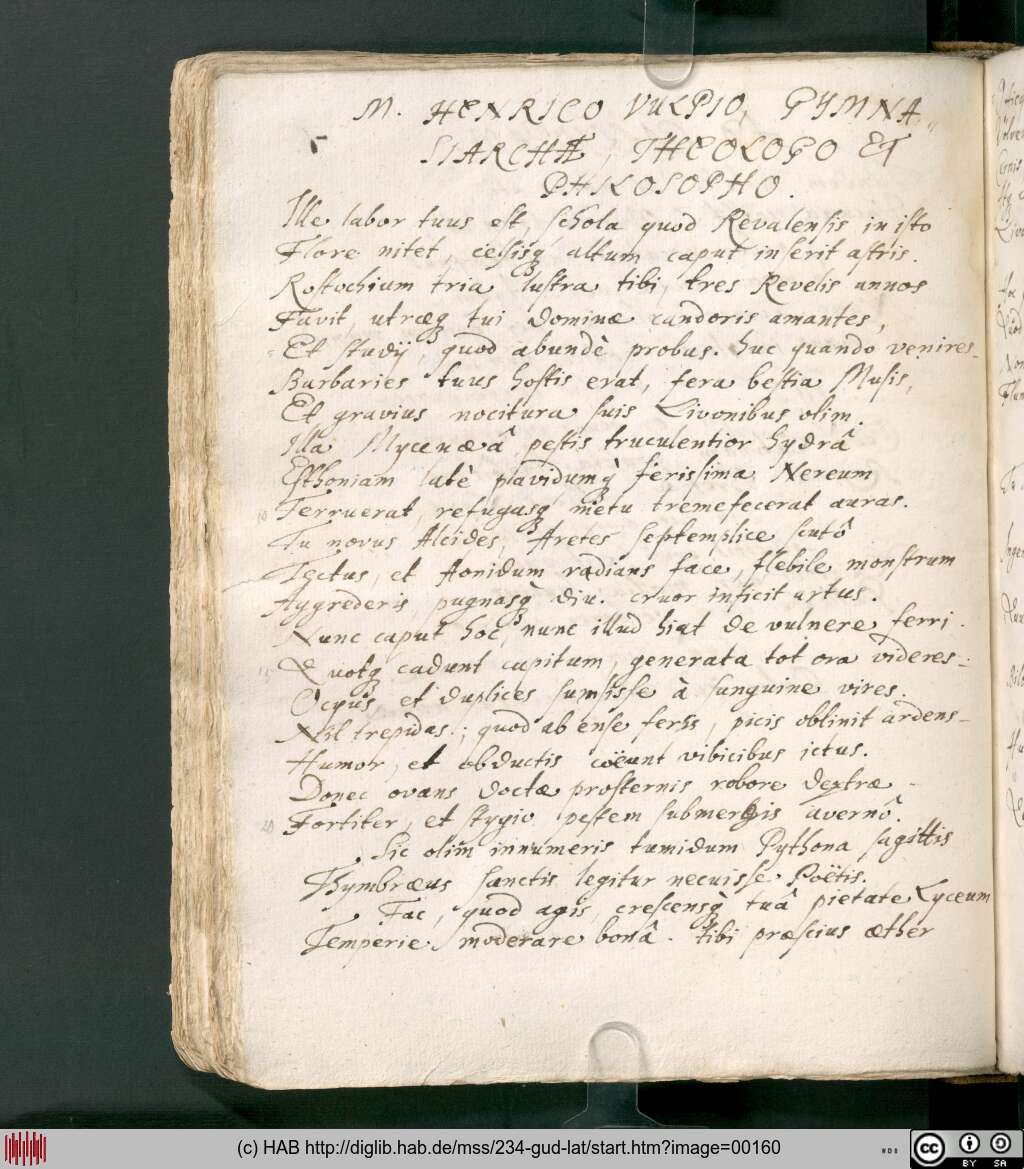 M. HENRICO VULPIO, GYMNA
SIARCHÆ, THEOLOGO ET
PHILOSOPHO.
Ille labor tuus est, schola quod Revalensis in isto
Flore nitet, celsisq́ altum caput inserit astris.
Rostochium tria lustra tibi, tres Revelis annos
Favit, utræq tui dominæ candoris amantes,
Et studij, quod abundè probas. huc quando venires
Barbaries tuus hostis erat, fera bestia Musis,
Et gravius nocitura suis Livonibus olim.
Illa Mycenæâ pestis truculentior hydrâ
Esthoniam latè pavidumq́ ferissima Nereum
10 Terruerat, refugasq metu tremefecerat auras.
Tu novus Alcides, Aretes septemplice scutô
Tectus, et Aonidum radians face, flebile monstrum
Aggrederis pugnasq́ diu. cruor inficit artus.
Nunc caput hoc, nunc illud hiat de vulnere ferri.
15 Quotq cadunt capitum, generata tot ora videres
Ocyus, et duplices sumsisse à sanguine vires.
Nil trepidas; quod ab ense feris, picis oblinit ardens
Humor, et obductis coëunt vibicibus ictus.
Donec ovans doctæ prosternis robore dextræ
20 Fortiter, et stygio pestem submergis avernô.
Sic olim innumeris tumidum Pythona sagittis
Thymbræus sanctis legitur necuisse Poëtis.
Fac, quod agis, crescensq́ tuâ pietate Lyceum
Temperie moderare bonâ. tibi præscius æther
(c) HAB http://diglib.hab.de/mss/234-gud-lat/start.htm?image=00160
cc BY SA